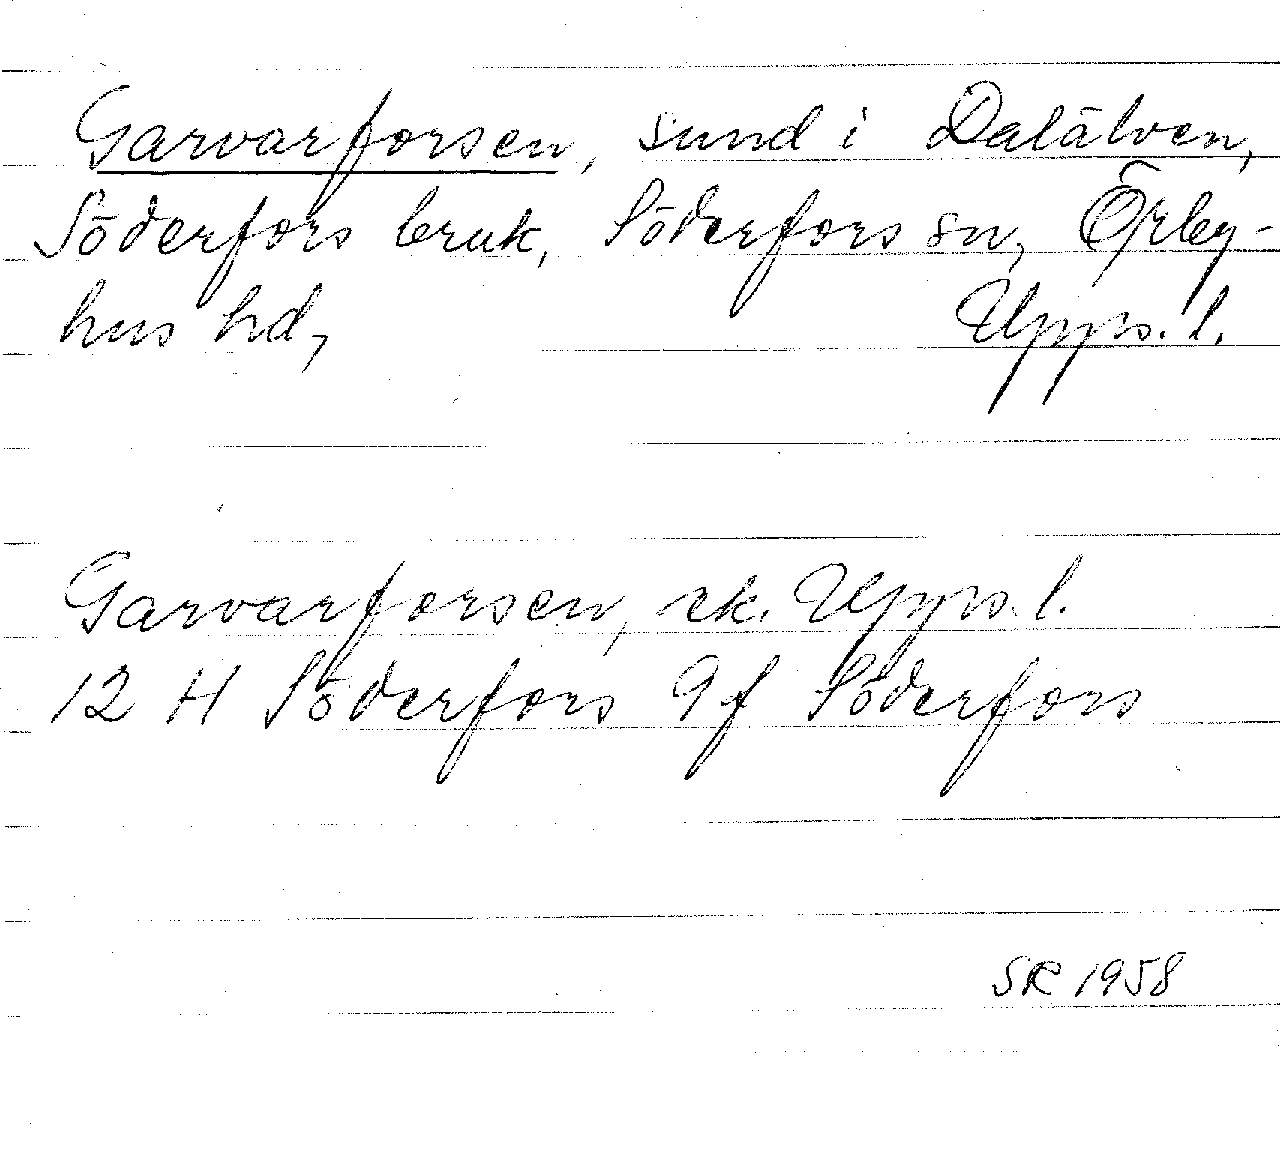 Garvarforsen, sund i Dalälven,
Söderfors bruk, Söderfors sn, Örby-
hus hd, Upps. l.
Garvarforsen, ek. Upps. l.
12 H Söderfors 9f Söderfors
SR 1958